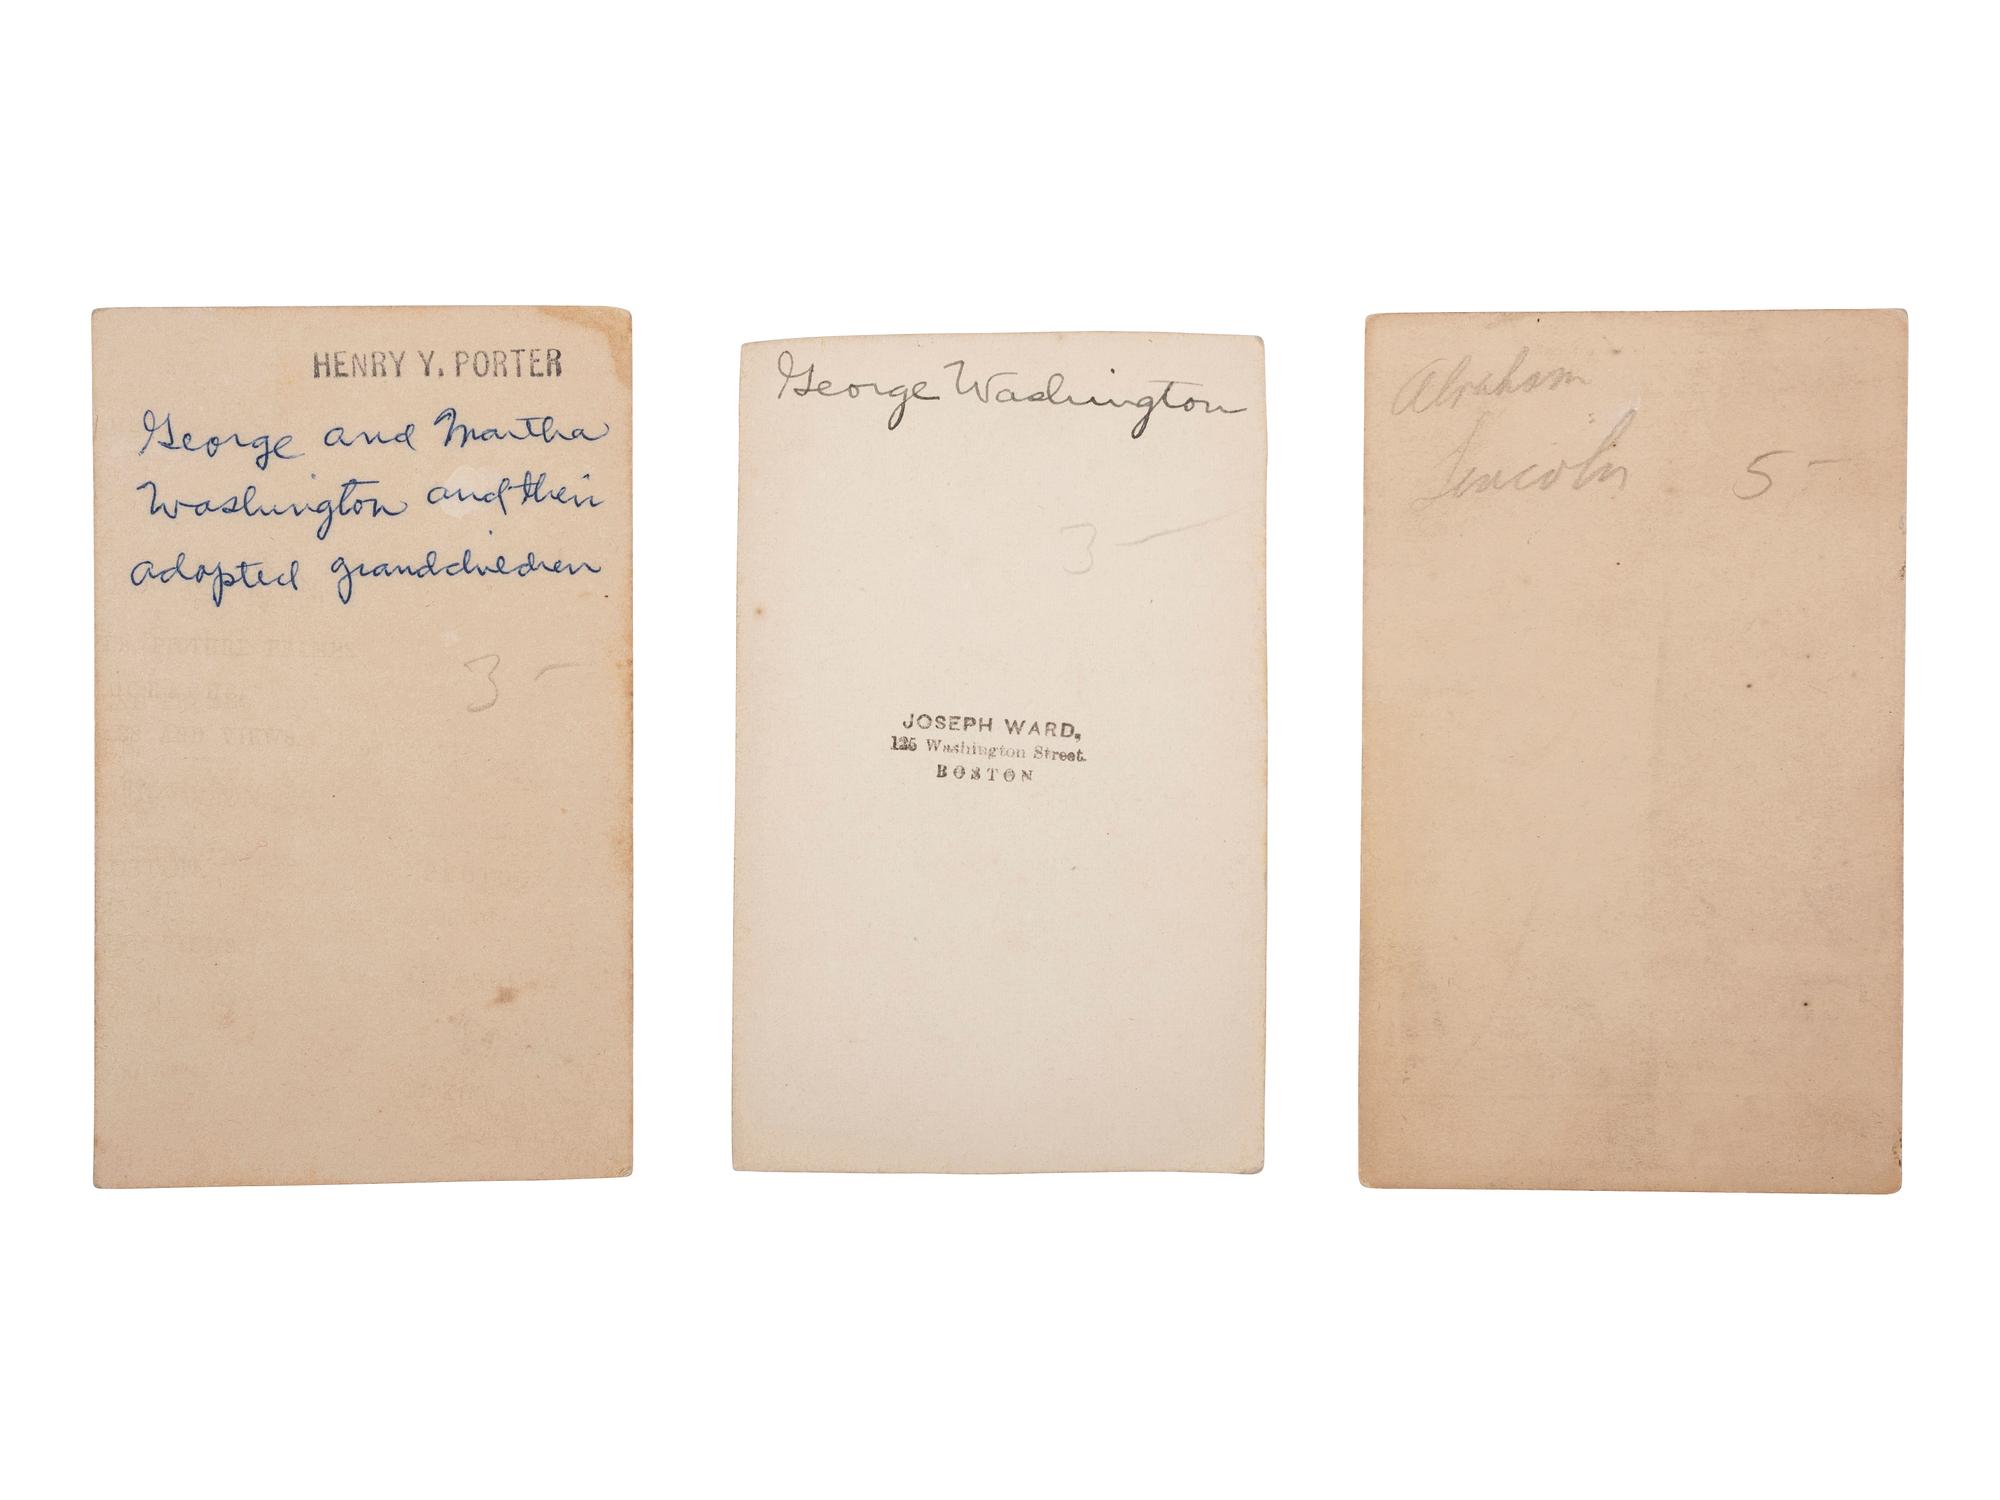 HENRY Y. PORTER
George and Martha
Washington and their
adopted grandchildren
3 -
George Washington
3 -
JOSEPH WARD,
125 Washington Street.
BOSTON
Abraham
Lincoln 5 -